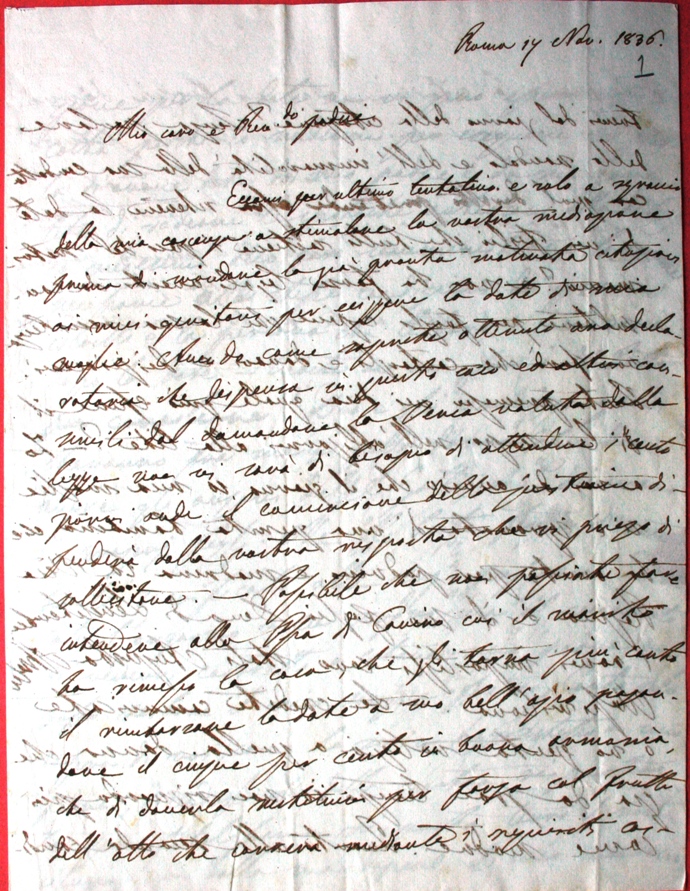 Roma 17 Nov. 1836.
1
Mio caro e Rev.do padre
Eccomi per ultimo tentativo e solo a sgravio
della mia coscienza a stimolare la vostra mediazione
prima di mandare la già pronta motivata citazione
ai miei per esigere la dote di mia
moglie. Avendo come saprete ottenuto una decla-
ratoria che dispensa in questo caso ed altri con-
simili dal domandare la venia voluta dalla
legge non vi sarà di bisogno di attendere i cento
giorni onde il cominciare della di-
penderà dalla vostra risposta che vi prego di
sollecitare. — Possibile che non possiate fare
intendere alla Ppa di Canino cui il marito
ha rimesso la cosa, che gli torna più conto
il rimborzare la dote a suo bell'agio pagan-
done il cinque per cento in buona armonia,
che di doverla restituire per forza col frutto
dell'otto che correrà mediante i requisiti co-